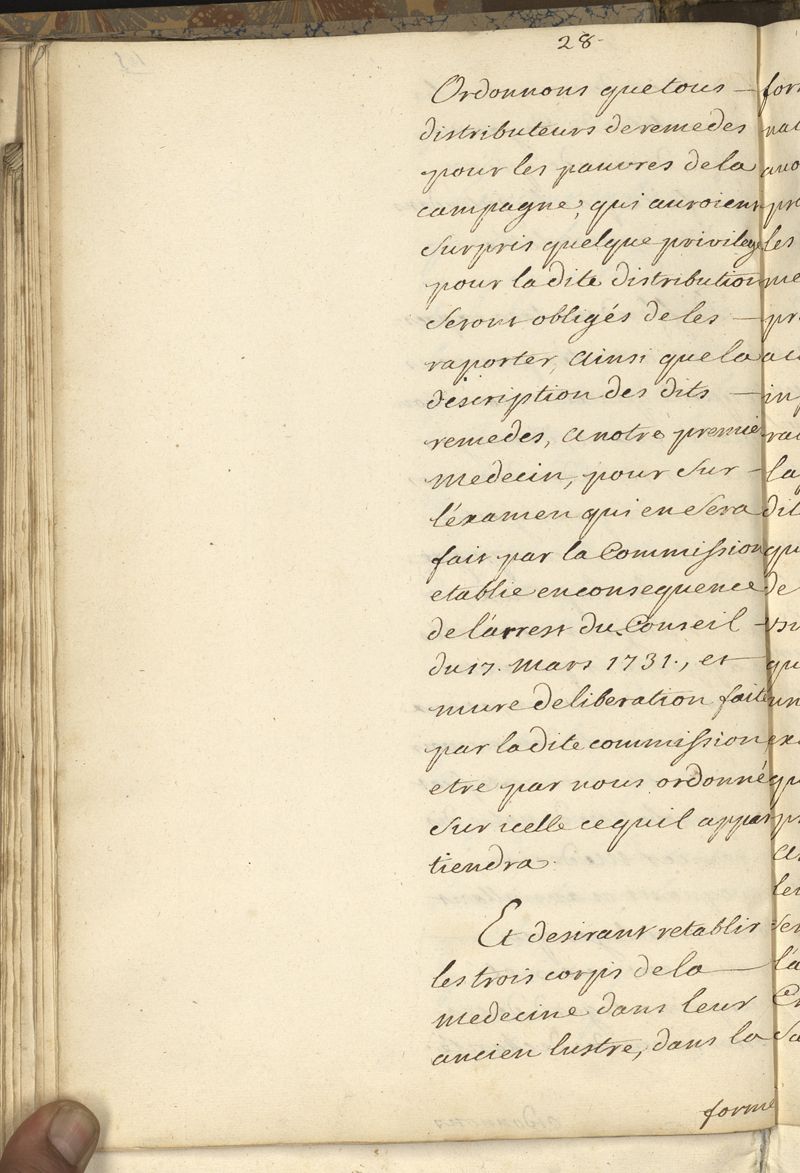 28
Ordonnons que tous
distributeurs de remedes
pour les pauvres de la
campagne, qui auroient
surpris quelque privilege
pour la dite distribution
seront obligés de les
raporter, ainsi que la
déscription des dits
remedes, a notre premie
medecin, pour sur
l'éxamen qui en sera
fait par la Commission
etablie en consequence
de l'arrest du Conseil
du 17. Mars 1731., et
mure deliberation faite
par la dite commission,
etre par nous ordonné
sur icelle ce quil appar
tiendra.
Et desirant retablir
les trois corps de la
medecine dans leur
ancien lustre, dans la
forme